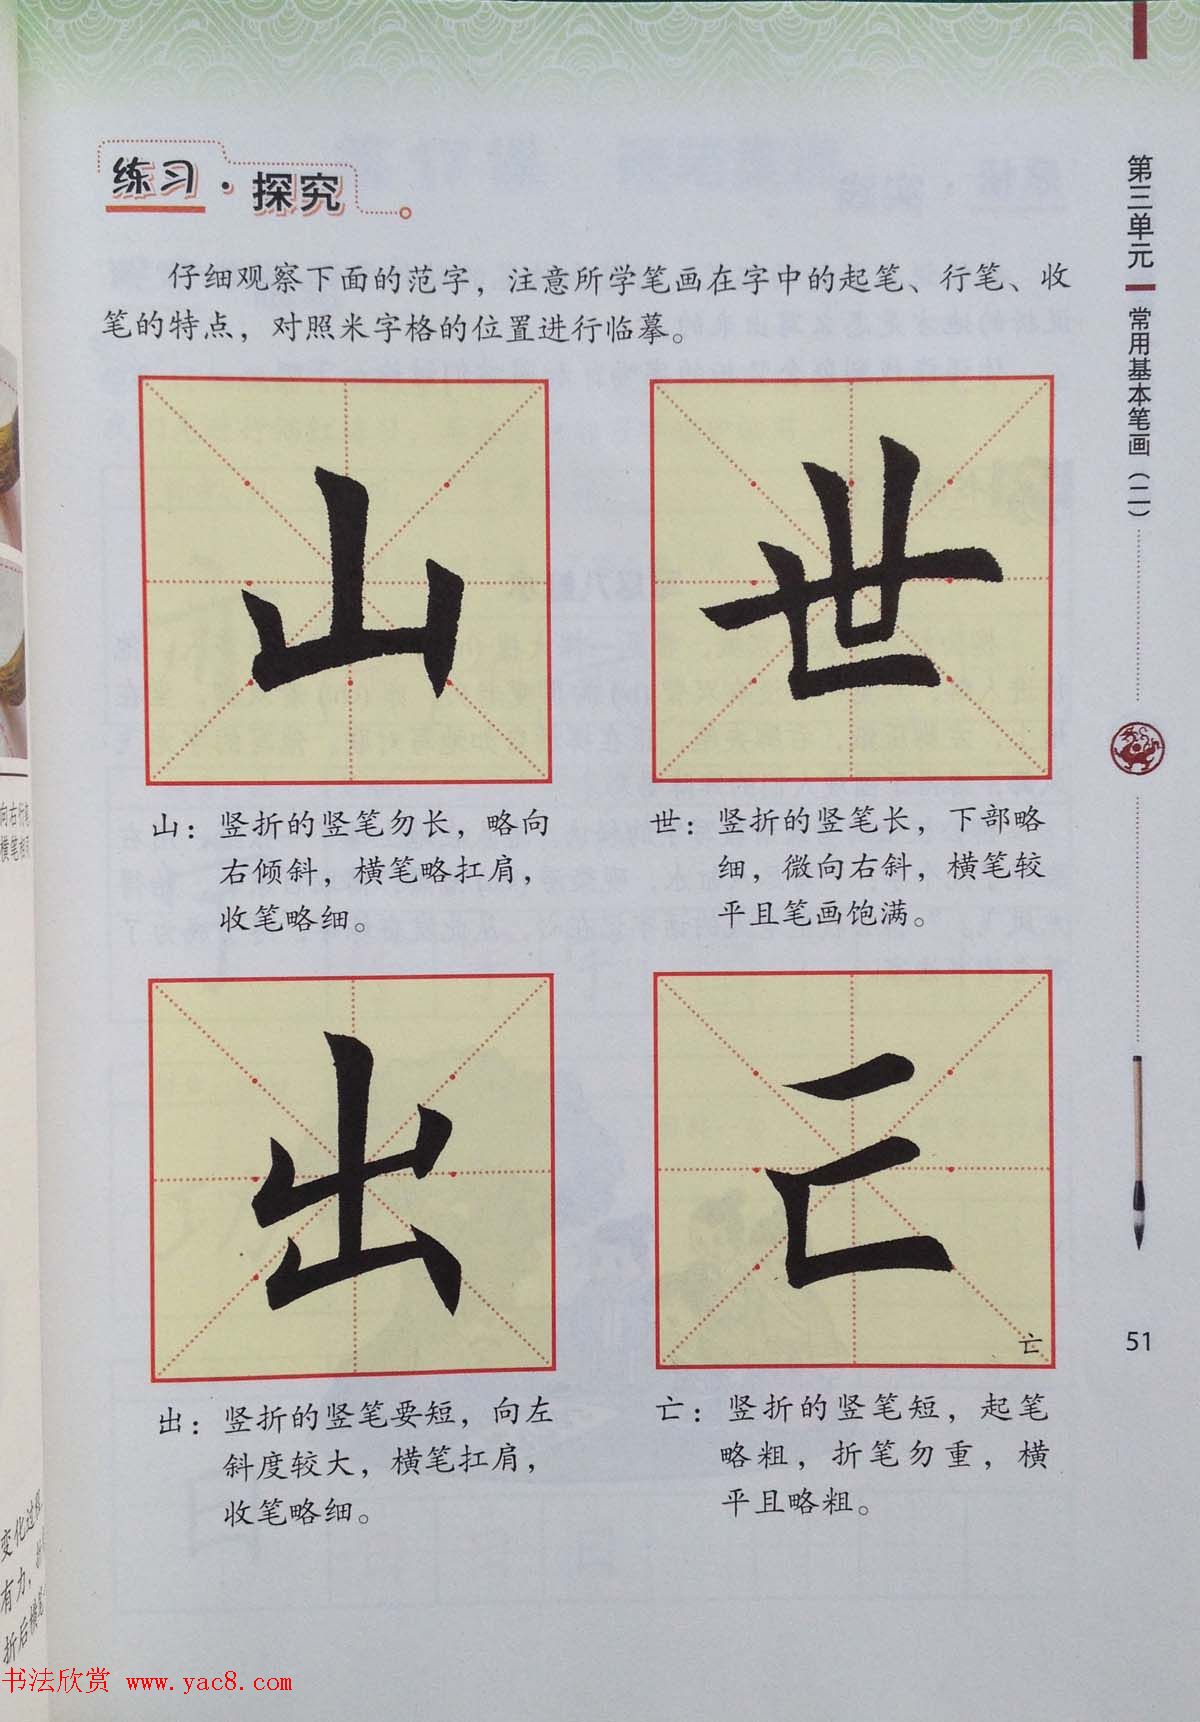 练习·探究
仔细观察下面的范字，注意所学笔画在字中的起笔、行笔、收
笔的特点，对照米字格的位置进行临摹。
山
世
山：竖折的竖笔勿长，略向
右倾斜，横笔略扛肩，
收笔略细。
世：竖折的竖笔长，下部略
细，微向右斜，横笔较
平且笔画饱满。
出
亡
出：竖折的竖笔要短，向左
斜度较大，横笔扛肩，
收笔略细。
亡：竖折的竖笔短，起笔
略粗，折笔勿重，横
平且略粗。
第三单元
常用基本笔画（二）
51
向右
横笔
变化过程
有力，
折后横
书法欣赏 www.yac8.com